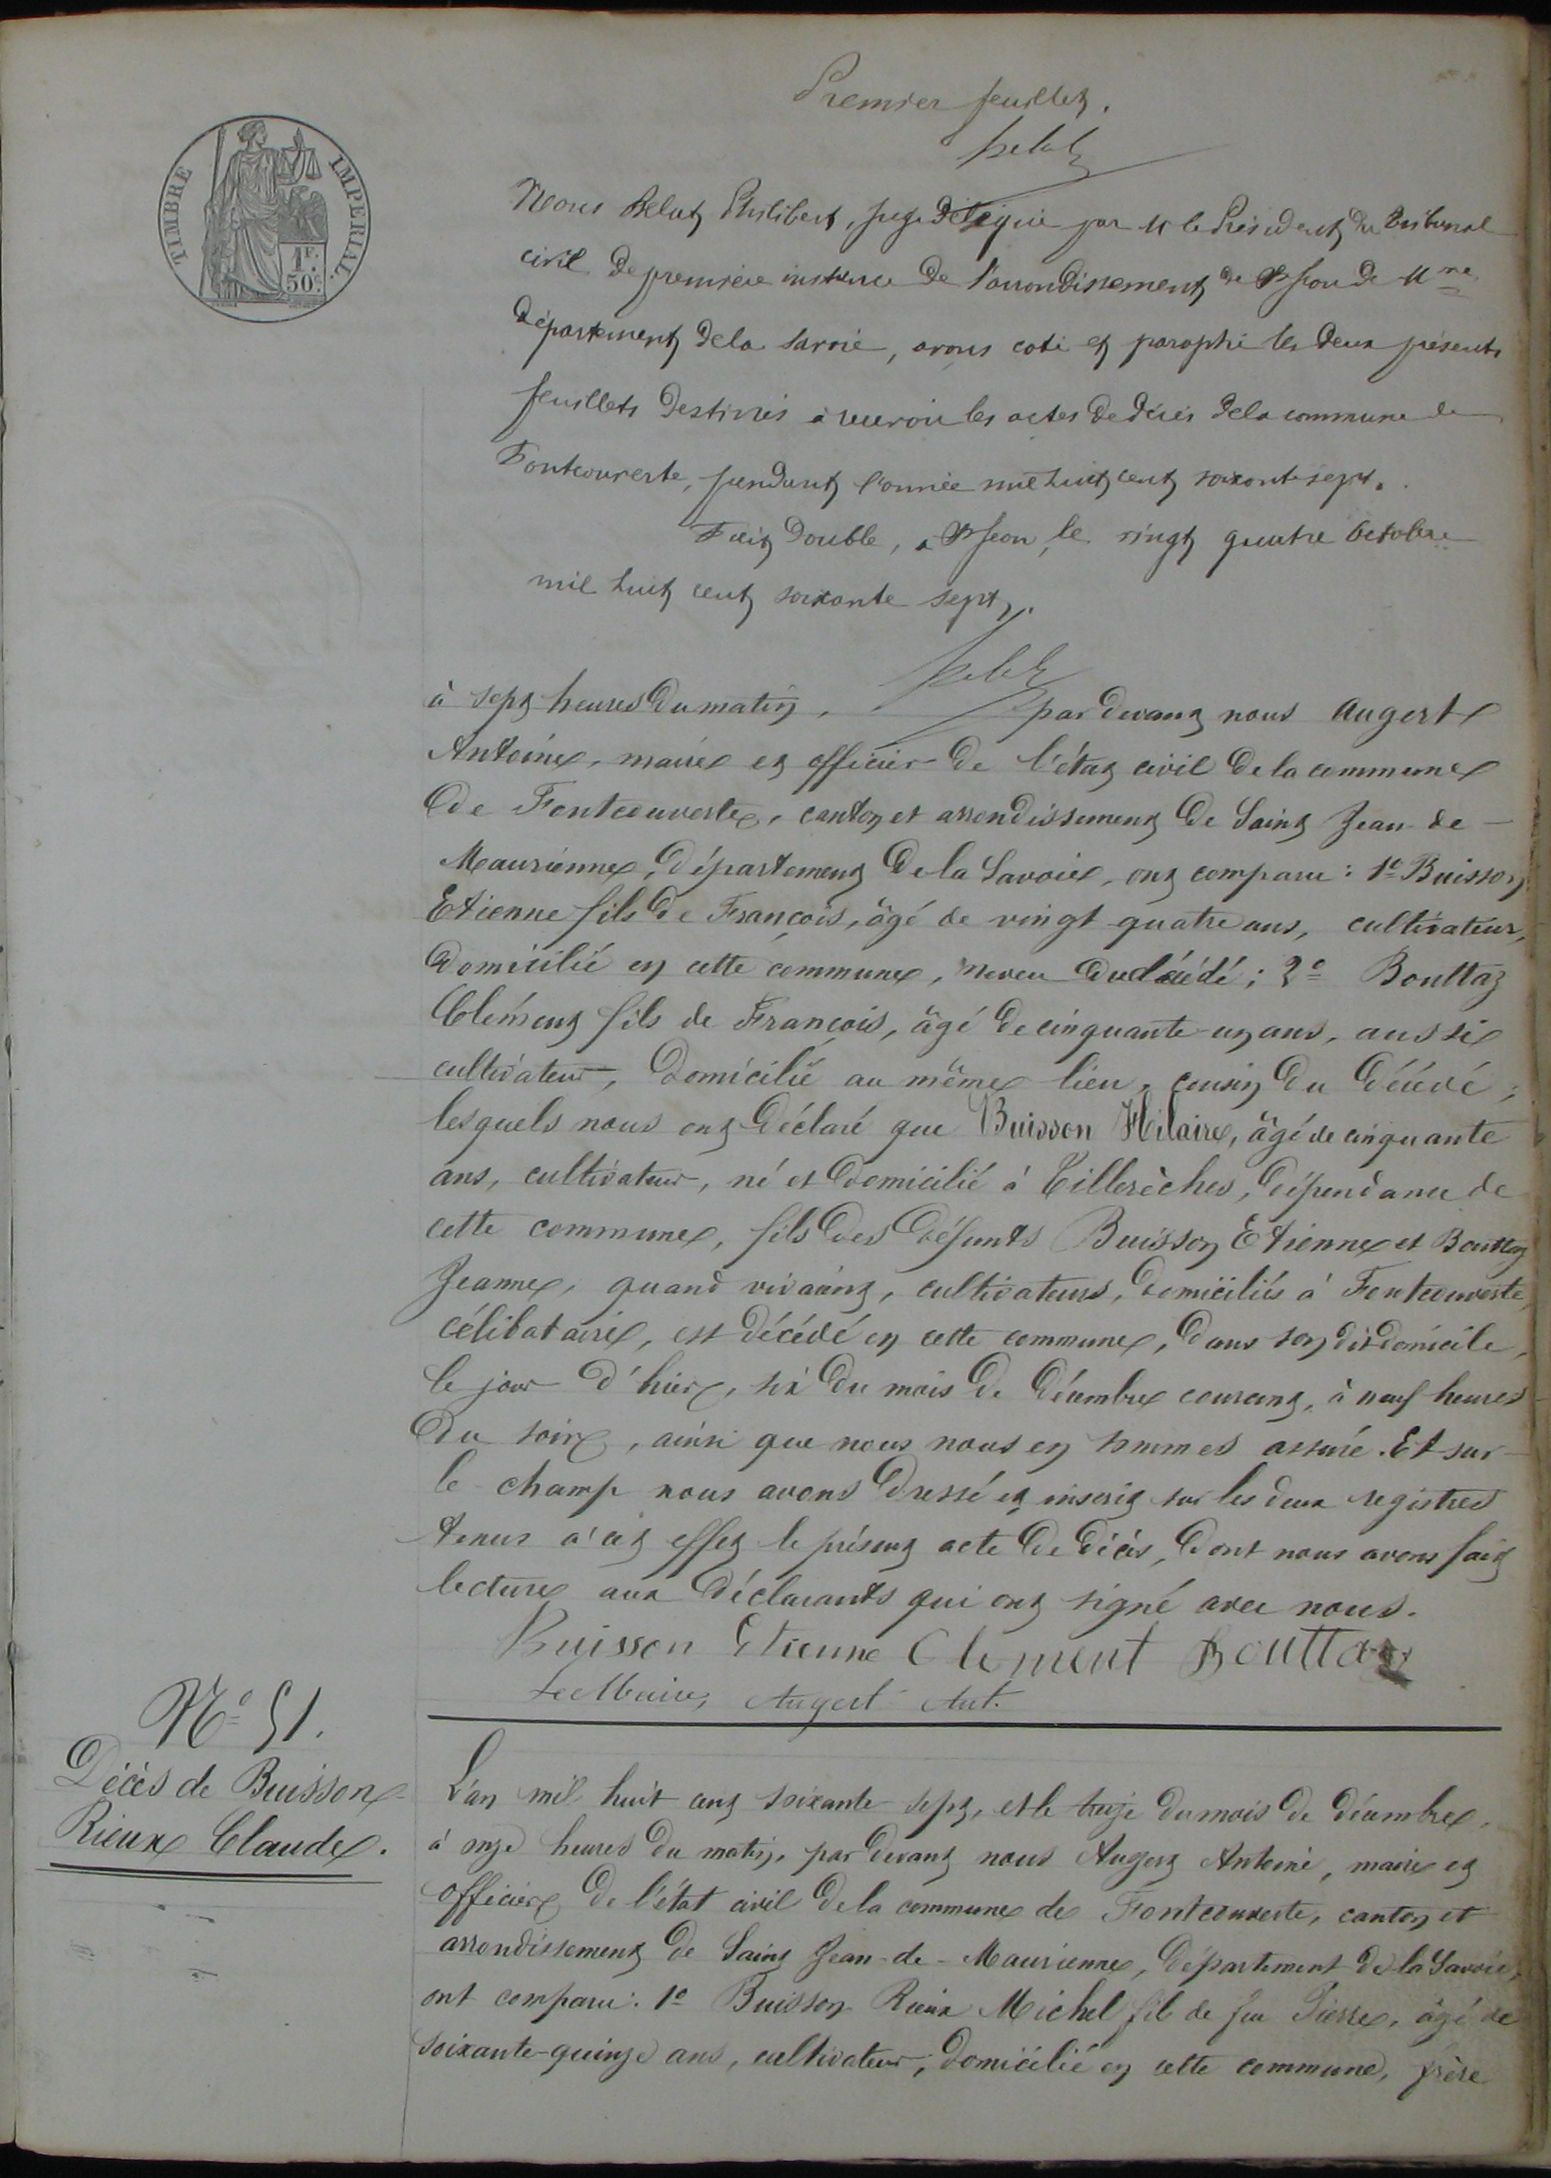 Premier feuillet.
TIMBRE IMPERIAL.
1F.
50c.
Nous Philibert, Juge délégué par Mr le Président du Tribunal
civil de première instance de l'arrondissement de St Jean de Mne
département de la Savoie, avons coté et paraphé les deux présents
feuillets destinés à recevoir les actes de décès de la commune de
Fontcouverte, pendant l'année mil huit cent soixante sept.
Fait double, à St Jean, le vingt quatre Octobre
mil huit cent soixante sept.
à sept heures du matin, par devant nous Augert
Antoine, maire et officier de l'état civil de la commune
de Fontcouverte, canton et arrondissement de Saint Jean de
Maurienne, département de la Savoie, ont comparu : 1º Buisson
Etienne fils de François, âgé de vingt quatre ans, cultivateur,
domicilié en cette commune, neveu du décédé ; 2º Bouttaz
Clément fils de François, âgé de cinquante un ans, aussi
cultivateur, domicilié au même lieu, cousin du décédé ;
lesquels nous ont déclaré que Buisson Hilaire, âgé de cinquante
ans, cultivateur, né et domicilié à Tillerèches, dépendance de
cette commune, fils des défunts Buisson Etienne et Bouttaz
Jeanne, quand vivaint, cultivateurs, domiciliés à Fontcouverte,
célibataire, est décédé en cette commune, dans son dit domicile,
le jour d'hier, six du mois de décembre courant, à neuf heures
du soir, ainsi que nous nous en sommes assuré. Et sur
le champ nous avons dressé et inscrit sur les deux registres
tenus à cet effet le présent acte de décès, dont nous avons fait
lecture aux déclarants qui ont signé avec nous.
Buisson Etienne Clement Bouttaz
Le Maire, Augert Ant.
Nº 51.
Décès de Buisson
Rieux Claude.
L'an mil huit cent soixante sept, et le treize du mois de décembre,
à onze heures du matin, par devant nous Augert Antoine, maire et
officier de l'état civil de la commune de Fontcouverte, canton et
arrondissement de Saint Jean-de-Maurienne, département de la Savoie,
ont comparu : 1º Buisson Rieux Michel fils de feu Pierre, âgé de
soixante-quinze ans, cultivateur, domicilié en cette commune, frère